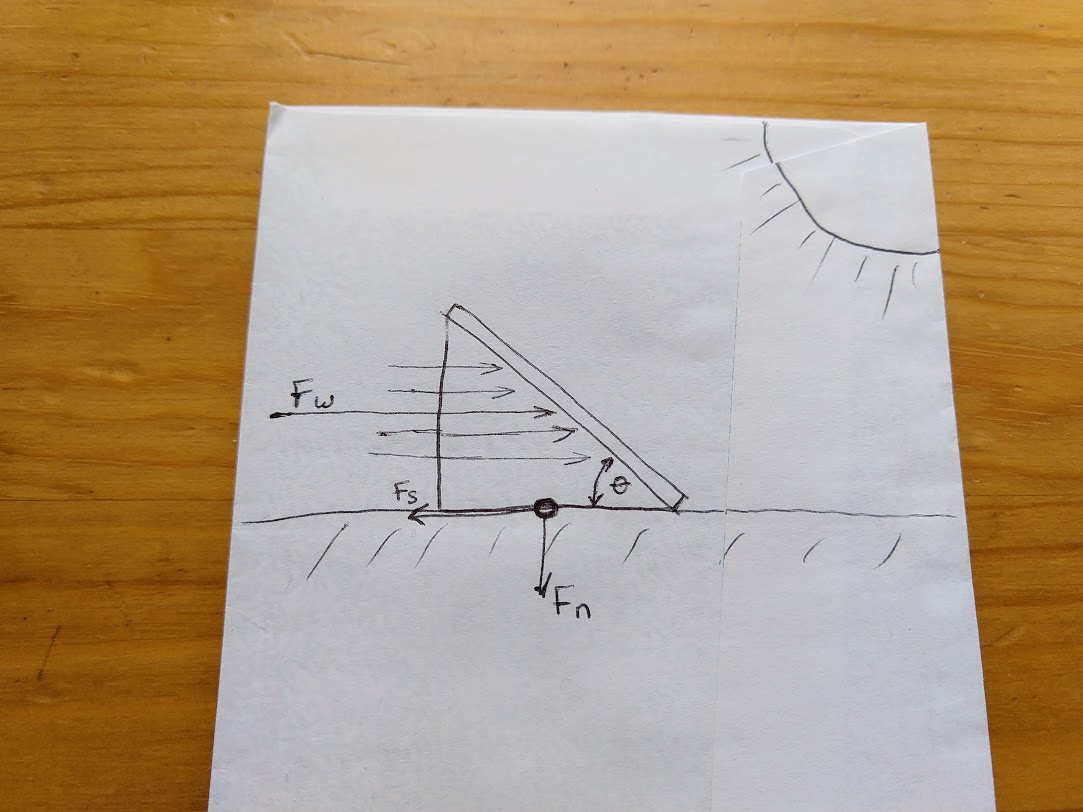 Fw
Fs
θ
Fn